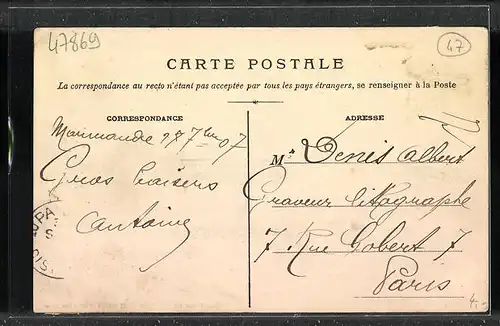 47869
47
CARTE POSTALE
La correspondance au recto n'étant pas acceptée par tous les pays étrangers, se renseigner à la Poste
CORRESPONDANCE
Marmande 27 7bre 07
Gros baisers
Antoine
ADRESSE
Mr Denis Albert
Graveur litographe
7 Rue Gobert 7
Paris
4.-